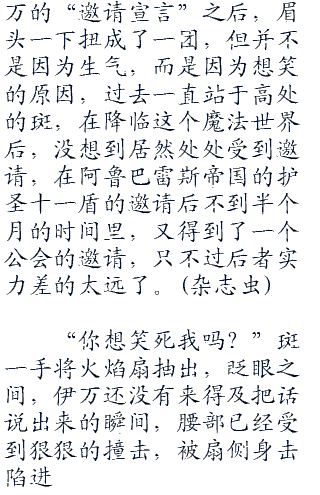 万的“邀请宣言”之后，眉
头一下扭成了一团，但并不
是因为生气，而是因为想笑
的原因，过去一直站于高处
的斑，在降临这个魔法世界
后，没想到居然处处受到邀
请，在阿鲁巴雷斯帝国的护
圣十一盾的邀请后不到半个
月的时间里，又得到了一个
公会的邀请，只不过后者实
力差的太远了。(杂志虫)
“你想笑死我吗？”斑
一手将火焰扇抽出，眨眼之
间，伊万还没有来得及把话
说出来的瞬间，腰部已经受
到狠狠的撞击，被扇侧身击
陷进